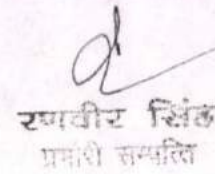 रणवीर सिंह
प्रभारी सम्पत्ति